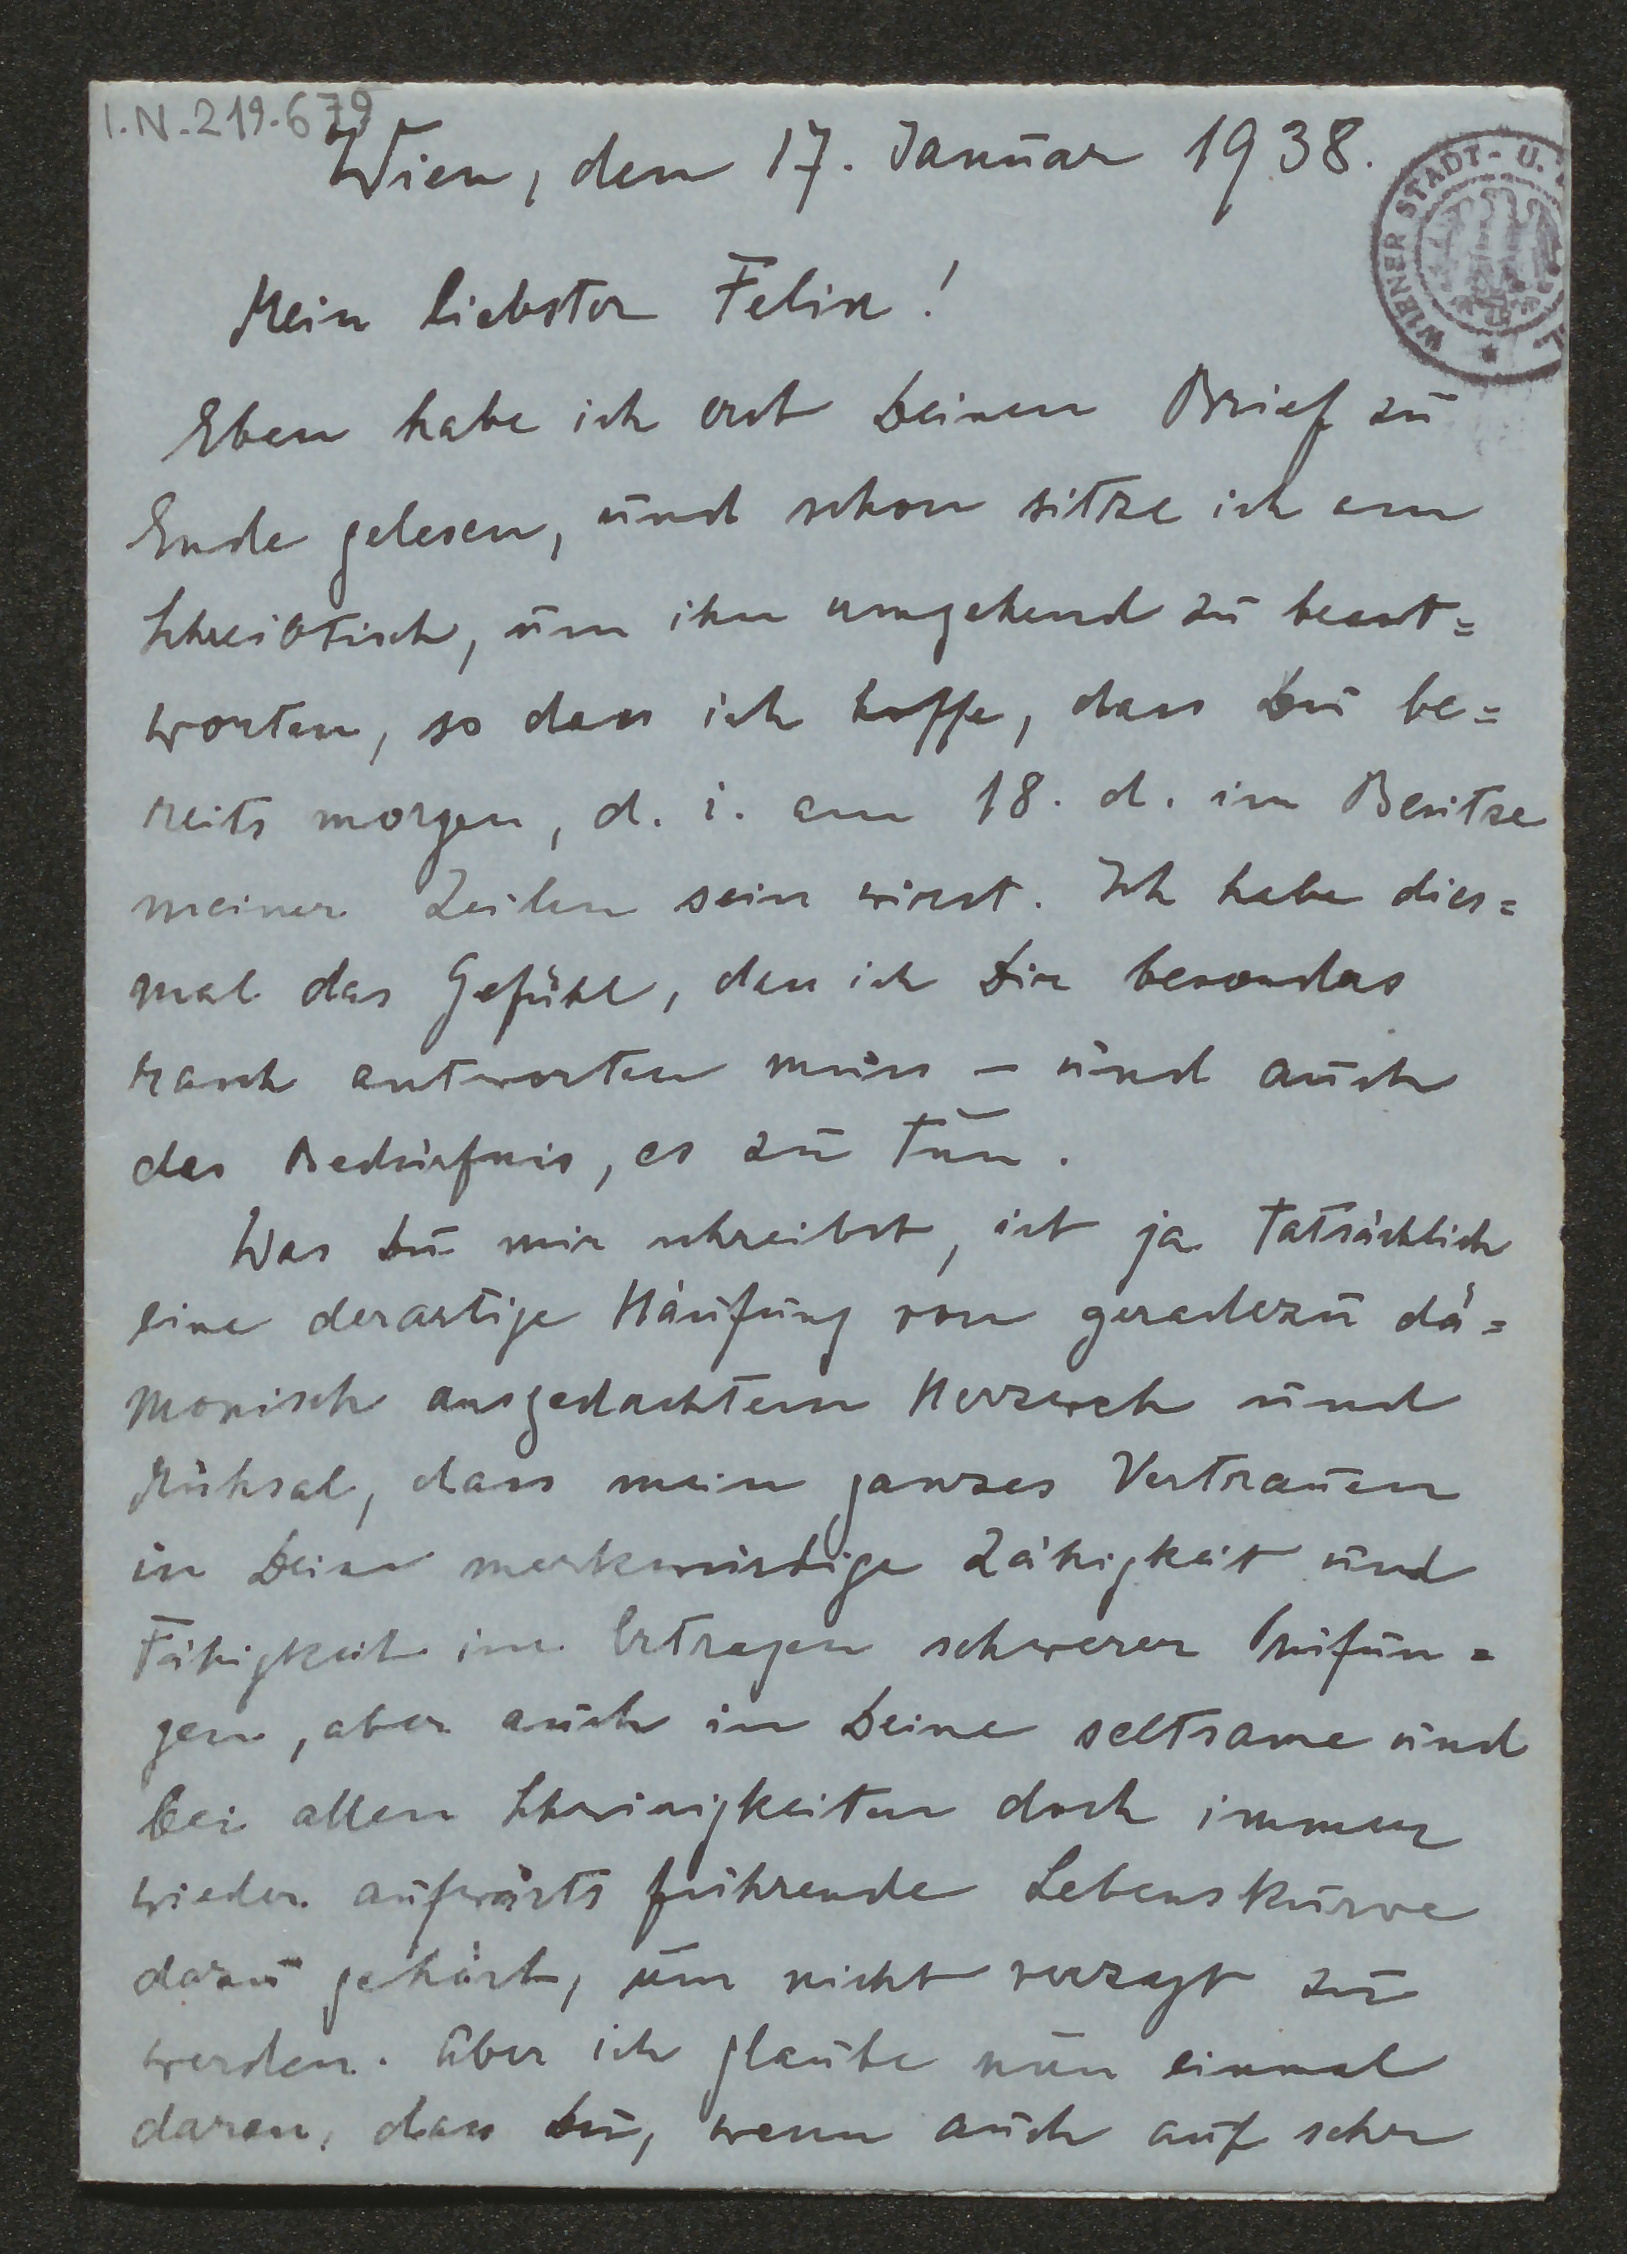 I.N.219.679
Wien, den 17. Januar 1938.
WIENER STADT- U.
Mein liebster Felix!
Eben habe ich erst Deinen Brief zu
Ende gelesen, und schon sitze ich am
Schreibtisch, um ihn umgehend zu beant=
worten, so dass ich hoffe, dass Du be=
reits morgen, d. i. am 18. d. im Besitze
meiner Zeilen sein wirst. Ich habe dies=
mal das Gefühl, dass ich Dir besonders
rasch antworten muss – und auch
das Bedürfnis, es zu tun.
Was Du mir schreibst, ist ja tatsächlich
eine derartige Häufung von geradezu dä=
monisch ausgedachtem Herzweh und
Mühsal, dass mein ganzes Vertrauen
in Deine merkwürdige Zähigkeit und
Fähigkeit im Ertragen schwerer Prüfun=
gen, aber auch in Deine seltsame und
bei allen Schwierigkeiten doch immer
wieder aufwärts führende Lebenskurve
dazu gehört, um nicht verzagt zu
werden. Aber ich glaube nun einmal
daran, dass Du, wenn auch auf sehr